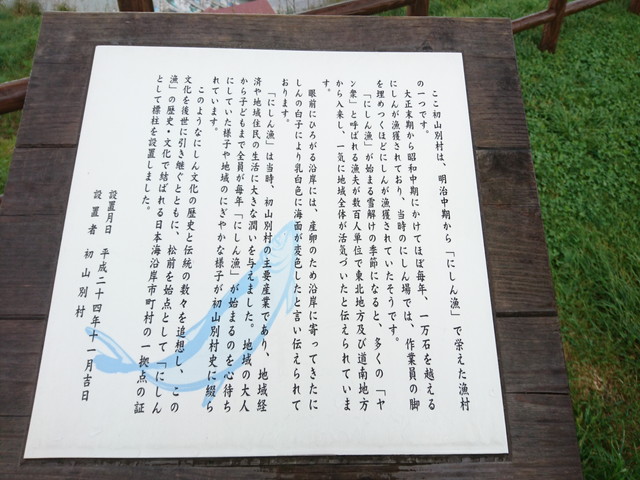 ここ初山別村は、明治中期から「にしん漁」で栄えた漁村
の一つです。
大正末期から昭和中期にかけてほぼ毎年、一万石を越える
にしんが漁獲されており、当時のにしん場では、作業員の脚
を埋めつくほどにしんが漁獲されていたそうです。
「にしん漁」が始まる雪解けの季節になると、多くの「ヤ
ン衆」と呼ばれる漁夫が数百人単位で東北地方及び道南地方
から入来し、一気に地域全体が活気づいたと伝えられていま
す。
眼前にひろがる沿岸には、産卵のため沿岸に寄ってきたに
しんの白子により乳白色に海面が変色したと言い伝えられて
おります。
「にしん漁」は当時、初山別村の主要産業であり、地域経
済や地域住民の生活に大きな潤いを与えました。地域の大人
から子どもまで全員が毎年「にしん漁」が始まるのを心待ち
にしていた様子や地域のにぎやかな様子が初山別村史に綴ら
れています。
このようなにしん文化の歴史と伝統の数々を追想し、この
文化を後世に引き継ぐとともに、松前を始点として「にしん
漁」の歴史・文化で結ばれる日本海沿岸市町村の一拠点の証
として標柱を設置しました。
設置月日 平成二十四年十一月吉日
設置者 初山別村